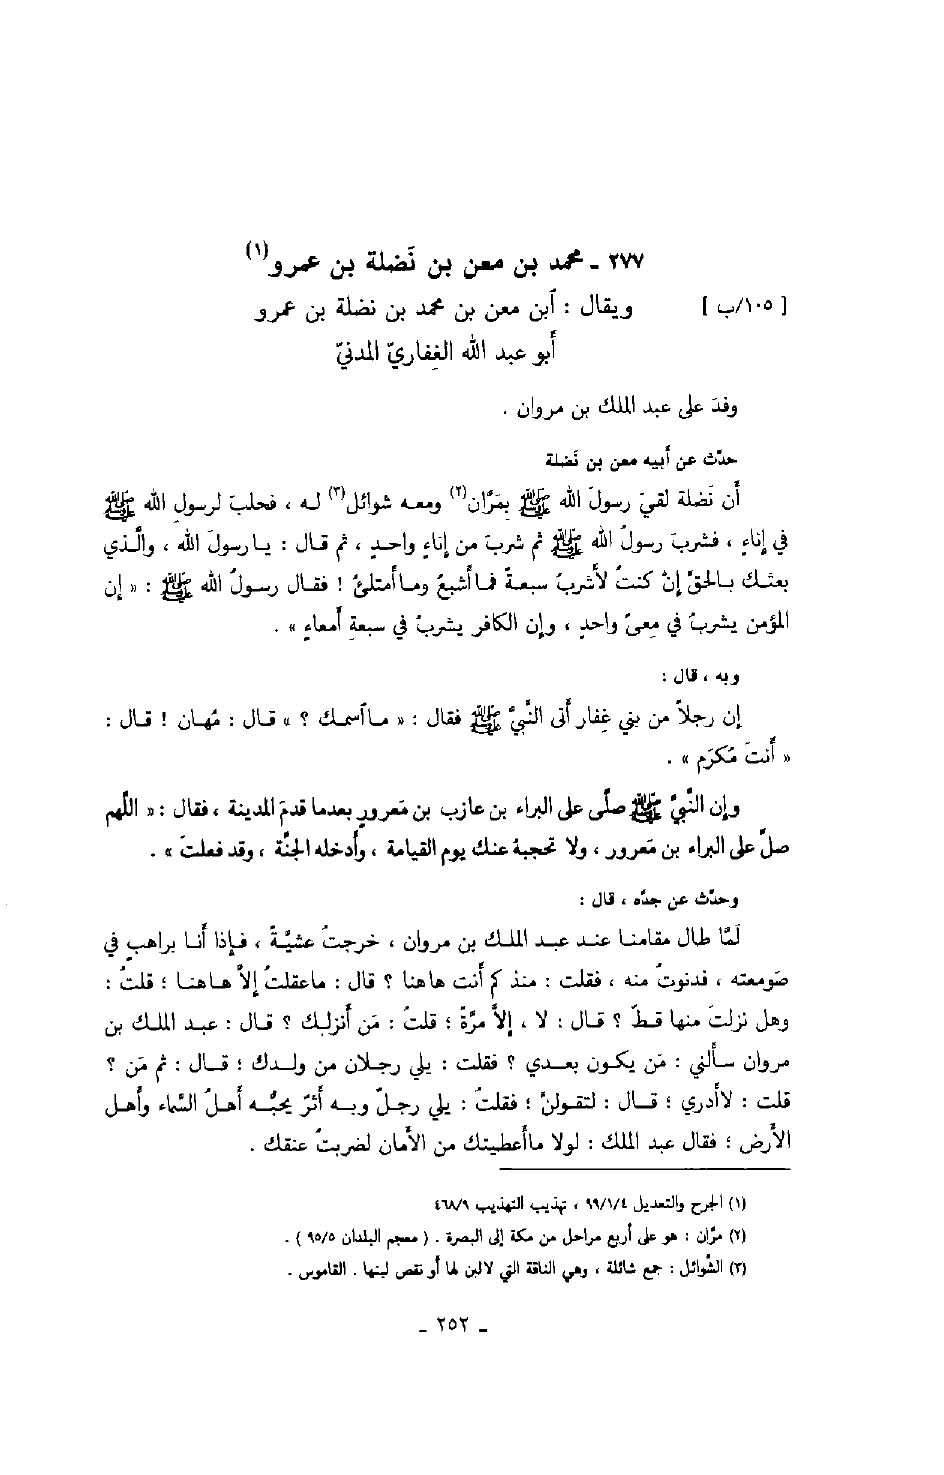 ٢٧٧ ـ محمد بن معن بن نَضلة بن عمرو(١)
[ ١٠٥/ب ] ويقال : ٱبن معن بن محمد بن نضلة بن عمرو
أبو عبد الله الغِفاريّ المدنيّ
وفدَ على عبد الملك بن مروان .
حدّث عن أبيه معن بن نَضلة
أن نَضلة لقيَ رسولَ الله ﷺ بمَرَّان(٢) ومعه شوائل(٣) له ، فحلبَ لرسولِ الله ﷺ
في إناءٍ ، فشربَ رسولُ الله ﷺ ثم شربَ من إناءٍ واحدٍ ، ثم قال : يا رسولَ الله ، والَّذي
بعثك بالحقِّ إنْ كنتُ لأشربُ سبعةً فما أشبعُ وما أمتلئُ ! فقال رسولُ الله ﷺ : « إن
المؤمن يشربُ في مِعىً واحدٍ ، وإن الكافر يشربُ في سبعةِ أمعاءٍ » .
وبه ، قال :
إن رجلاً من بني غِفار أتى النَّبيَّ ﷺ فقال : « ما ٱسمك ؟ » قال : مُهان ! قال :
« أنتَ مُكرَم » .
وإن النَّبيَّ ﷺ صلّى على البراء بن عازب بن مَعرورٍ بعدما قدمَ المدينة ، فقال : « اللّهم
صلِّ على البراء بن مَعرور ، ولا تحجبهُ عنك يوم القيامة ، وأدخله الجنَّة ، وقد فعلتَ » .
وحدّث عن جدّه ، قال :
لَمَّا طال مقامنا عند عبد الملك بن مروان ، خرجتُ عشيَّةً ، فإذا أنا براهبٍ في
صَومعته ، فدنوتُ منه ، فقلت : منذ كم أنت هاهنا ؟ قال : ماعقلتُ إلاَّ هاهنا ؛ قلتُ :
وهل نزلتَ منها قطّ ؟ قال : لا ، إلاَّ مرَّةً ؛ قلتُ : مَن أنزلك ؟ قال : عبد الملك بن
مروان سألني : مَن يكون بعدي ؟ فقلت : يلي رجلان من ولدك ؛ قال : ثم مَن ؟
قلت : لا أدري ؛ قال : لتقولنَّ ؛ فقلتُ : يلي رجلٌ وبه أثرٌ يحبُّه أهلُ السَّماء وأهل
الأرض ؛ فقال عبد الملك : لولا ما أعطيتك من الأمان لضربتُ عنقك .
(١) الجرح والتعديل ٩٩/١/٤ ، تهذيب التهذيب ٤٦٨/٩
(٢) مرّان : هو على أربع مراحل من مكة إلى البصرة . ( معجم البلدان ٩٥/٥ ) .
(٣) الشّوائل : جمع شائلة ، وهي الناقة التي لا لبن لها أو نقص لبنها . القاموس .
ـ ٢٥٢ ـ